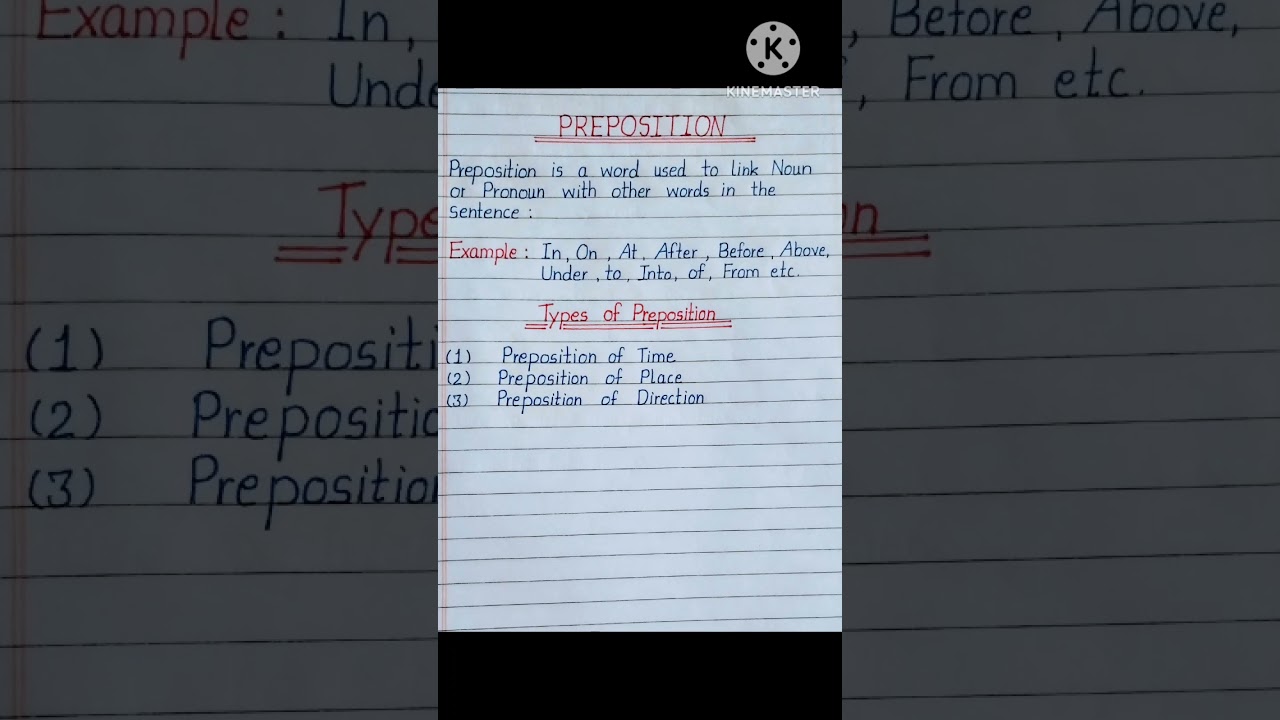 KINEMASTER
PREPOSITION
Preposition is a word used to link Noun
or Pronoun with other words in the
sentence :
Example : In, On , At, After , Before , Above,
Under , to , Into, of, From etc.
Types of Preposition
(1) Preposition of Time
(2) Preposition of Place
(3) Preposition of Direction